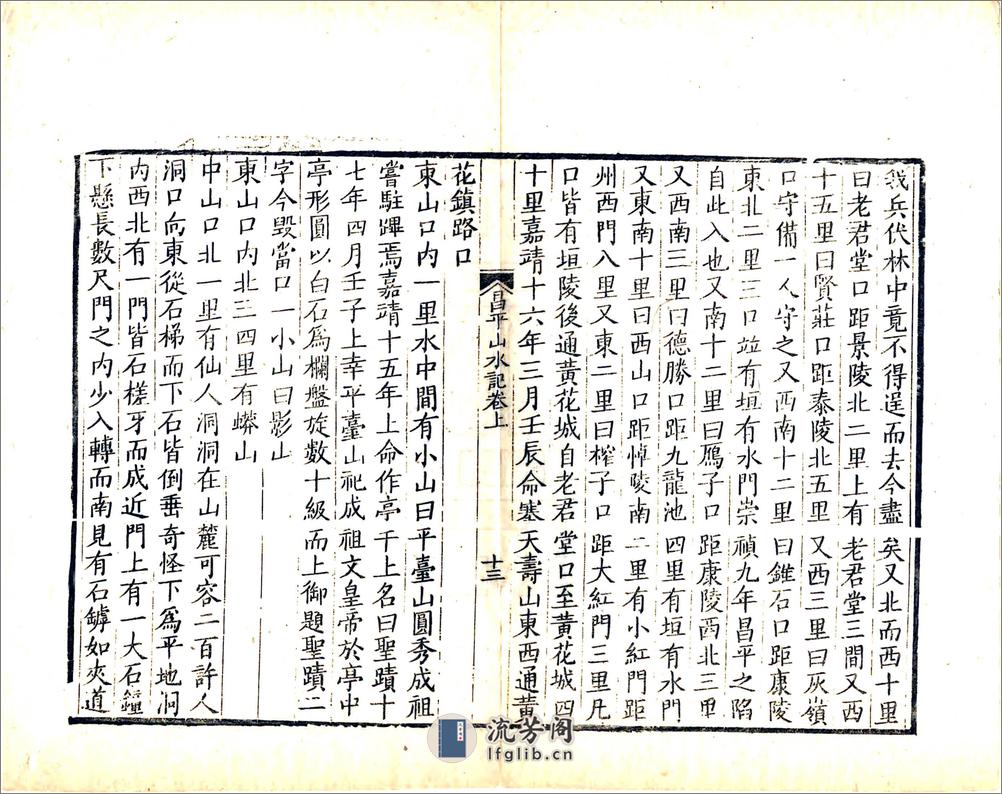 我兵伏林中竟不得逞而去今盡矣又北而西十里
曰老君堂口距景陵北二里上有老君堂三間又西
十五里曰賢莊口距泰陵北五里又西三里曰灰嶺
口守備一人守之又西南十二里曰錐石口距康陵
東北二里三口竝有垣有水門崇禎九年昌平之陷
自此入也又南十二里曰鴈子口距康陵西北三里
又西南三里曰德勝口距九龍池四里有垣有水門
又東南十里曰西山口距悼陵南二里有小紅門距
州西門八里又東二里曰榨子口距大紅門三里凡
口皆有垣陵後通黃花城自老君堂口至黃花城四
十里嘉靖十六年三月壬辰命塞天壽山東西通黃
昌平山水記卷上
十三
花鎮路口
東山口內一里水中間有小山曰平臺山圓秀成祖
嘗駐蹕焉嘉靖十五年上命作亭于上名曰聖蹟十
七年四月壬子上幸平臺山祀成祖文皇帝於亭中
亭形圓以白石爲欄盤旋數十級而上御題聖蹟二
字今毀當口一小山曰影山
東山口內北三四里有蟒山
中山口北一里有仙人洞洞在山麓可容二百許人
洞口向東從石梯而下石皆倒垂奇怪下爲平地洞
內西北有一門皆石槎牙而成近門上有一大石鐘
下懸長數尺門之內少入轉而南見有石罅如夾道
流芳阁
lfglib.cn